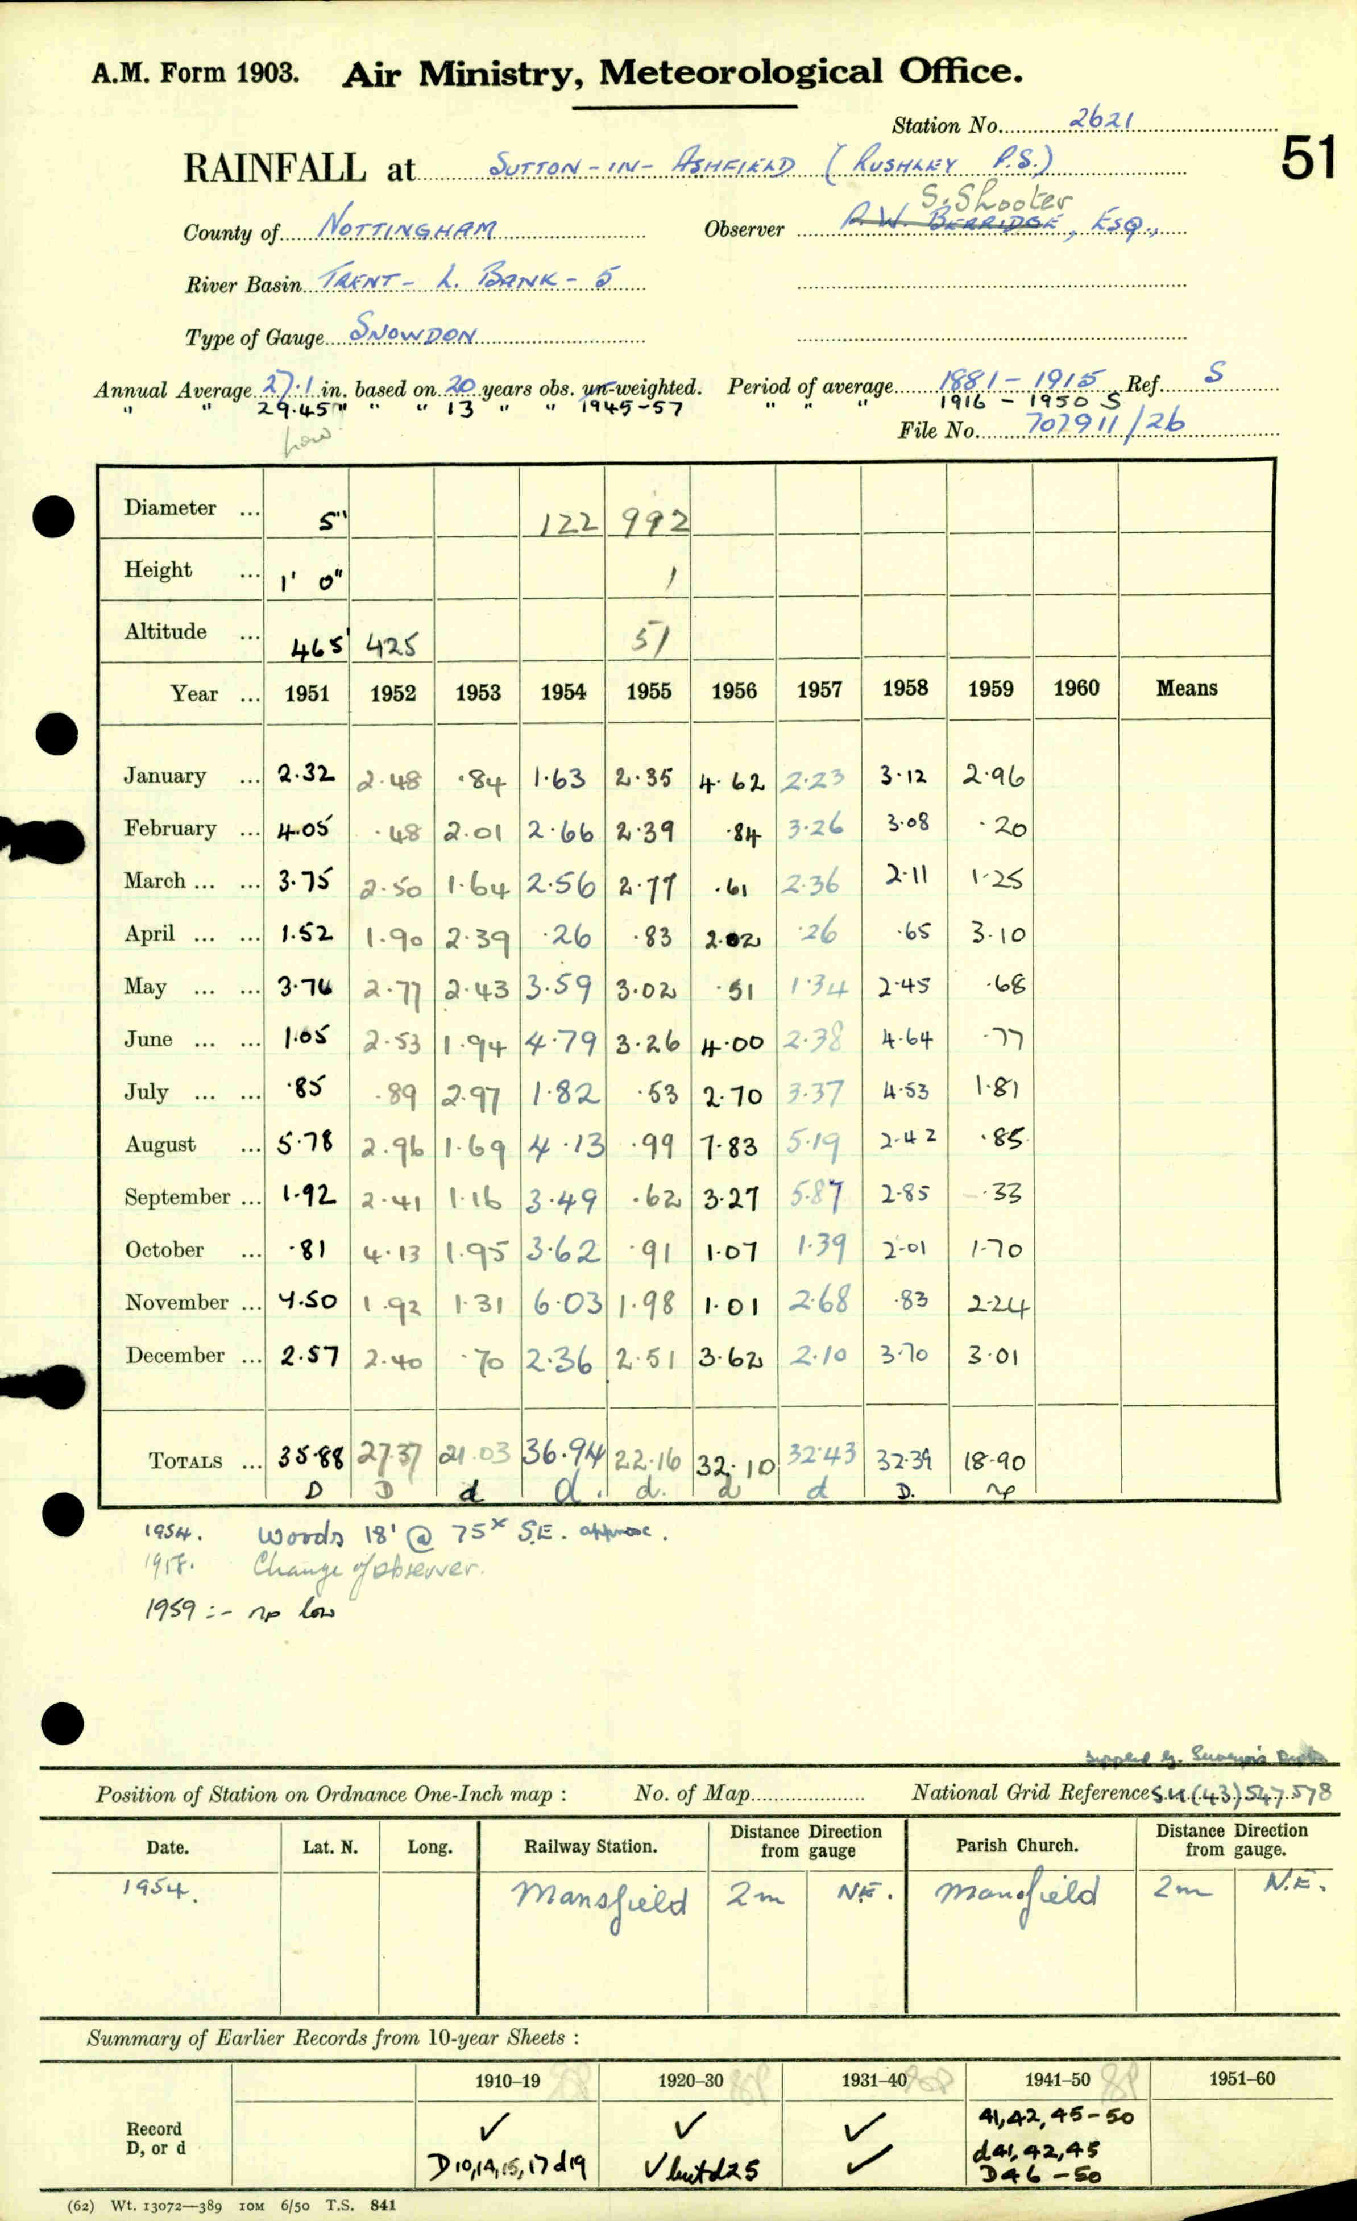 A.M. Form 1903. Air Ministry, Meteorological Office.
Station No. 2621
51
RAINFALL at SUTTON-IN-ASHFIELD (RUSHLEY P.S.)
S. Shooter
County of NOTTINGHAM Observer R.W. BERRIDGE, ESQ.,
River Basin TRENT - L. BANK - 5
Type of Gauge SNOWDON
Annual Average 27.1 in. based on 20 years obs. un-weighted. Period of average 1881-1915 Ref. S
" " 29.45" " " 13 " " 1945-57 " " " 1916 - 1950 S
low
File No. 707911/26
Diameter ... 5" 122 992
Height ... 1' 0" 1
Altitude ... 465' 425 51
Year ... 1951 1952 1953 1954 1955 1956 1957 1958 1959 1960 Means
January ... 2.32 2.48 .84 1.63 2.35 4.62 2.23 3.12 2.96
February ... 4.05 .48 2.01 2.66 2.39 .84 3.26 3.08 .20
March ... ... 3.75 2.50 1.64 2.56 2.77 .61 2.36 2.11 1.25
April ... ... 1.52 1.90 2.39 .26 .83 2.02 .26 .65 3.10
May ... ... 3.76 2.77 2.43 3.59 3.02 .51 1.34 2.45 .68
June ... ... 1.05 2.53 1.94 4.79 3.26 4.00 2.38 4.64 .77
July ... ... .85 .89 2.97 1.82 .53 2.70 3.37 4.53 1.81
August ... 5.78 2.96 1.69 4.13 .99 7.83 5.19 2.42 .85
September ... 1.92 2.41 1.16 3.49 .62 3.27 5.87 2.85 .33
October ... .81 4.13 1.95 3.62 .91 1.07 1.39 2.01 1.70
November ... 4.50 1.92 1.31 6.03 1.98 1.01 2.68 .83 2.24
December ... 2.57 2.40 .70 2.36 2.51 3.62 2.10 3.70 3.01
TOTALS ... 35.88 27.37 21.03 36.94 22.16 32.10 32.43 32.39 18.90
D D d d. d. d d D. np
1954. Woods 18' @ 75x S.E. approx.
1958. Change of observer.
1959 :- np low
Supplied by Surveyor's
Position of Station on Ordnance One-Inch map : No. of Map National Grid Reference SK(43)547578
Date. Lat. N. Long. Railway Station. Distance Direction from gauge Parish Church. Distance Direction from gauge.
1954. Mansfield 2m N.E. Mansfield 2m N.E.
Summary of Earlier Records from 10-year Sheets :
1910–19 1920–30 1931–40 1941–50 1951–60
Record ✓ ✓ ✓ 41,42,45-50
D, or d D10,14,15,17 d19 ✓ but d25 ✓ d41,42,45
D46-50
(62) Wt. 13072—389 10M 6/50 T.S. 841